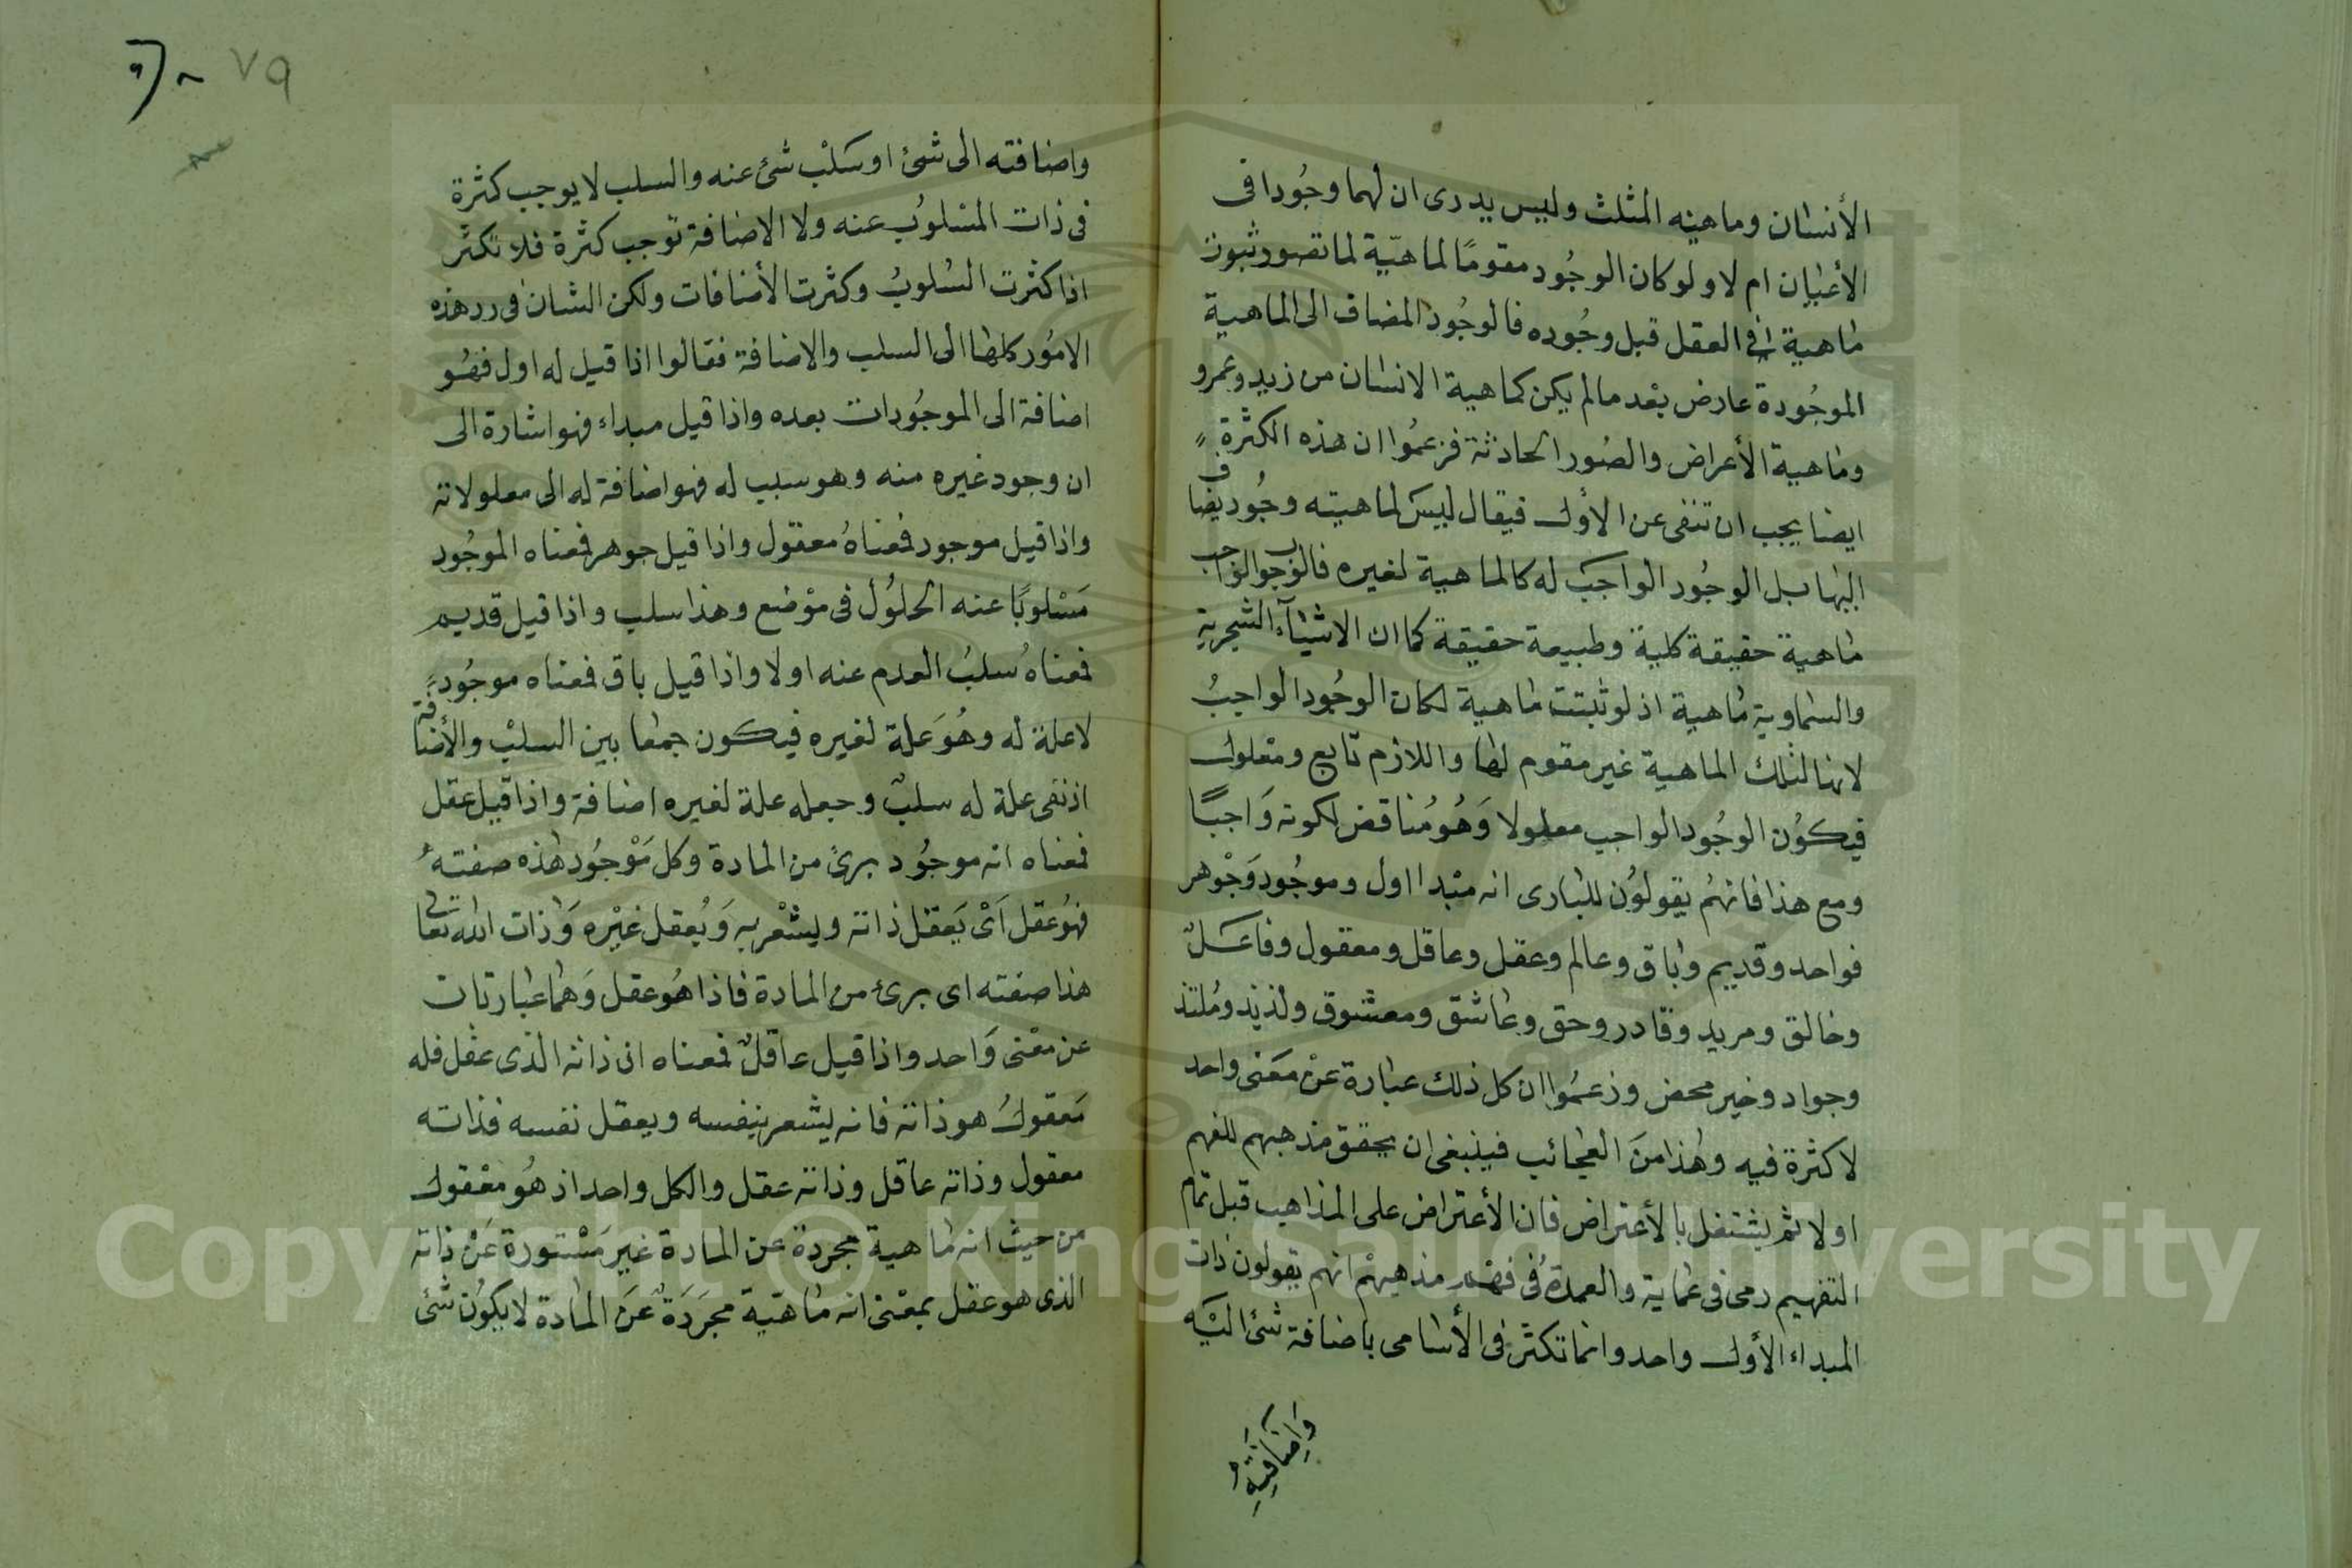 الأنسان وماهيته المثلث وليس يدرى ان لهما وجُودا فى
الأعيان ام لا ولو كان الوجُود مقومًا لماهيّة لما تصور ثبوت
ماهية فى العقل قبل وجُوده فالوجُود المضاف الى الماهية
الموجُودة عارض بعْد مالم يكن كماهية الانسان من زيد وعمرو
وماهية الأعراض والصُور الحادثة فزعمُوا ان هذه الكثرة
ايضا يجب ان تنفى عن الأول فيقال ليسَ لماهيته وجُود يضاف
اليها بل الوجُود الواجبَ له كالماهية لغيره فالوجوب الواجب
ماهية حقيقة كلية وطبيعة حقيقة كما ان الاشيآء الشجرية
والسماوية ماهية اذ لو ثبتت ماهية لكان الوجُود الواجبُ
لازما لتلك الماهية غير مقوم لها واللازم تابع ومعْلول
فيكوُن الوجُود الواجب معلولا وَهُو مُناقض لكونه وَاجبًا
ومع هذا فانهمُ يقولوُن للبارى انه مبْدا اول وموجُود وَجْوهر
فواحد وقديم وباق وعالم وعقل وعاقل ومعقول وفاعَلٌ
وخالق ومريد وقادر وحق وعاشق ومعشوق ولذيذ ومُلتذ
وجواد وخير محض وزعمُوا ان كل ذلك عبارة عنْ معَنى واحد
لا كثرة فيه وهذا منَ العجائب فينبغى ان يحقق مذهبهم للفهم
اولا ثم يشتغل بالأعتراض فان الأعتراض على المذاهب قبل تمام
التفهيم رمى فى عماية والعمدةُ فى فهم مذهبهْم انهم يقولون ذات
المبداء الأول واحد وانما تكثّر فى الأسامى باضافة شئ اليَه
وَاِضَافَتِهِ
٧٩
واضافته الى شئ اوسَلبْ شئ عنه والسلب لا يوجب كثرة
فى ذات المسْلوُب عنه ولا الاضافة توجب كثرة فلا تكثّر
اذا كثرت السُلوبُ وكثرت الأضافات ولكن الشان فى رد هذه
الامُور كلها الى السلب والاضافة فقالوا اذا قيل له اول فهُو
اضافة الى الموجُودات بعده واذا قيل مبداء فهو اشارة الى
ان وجود غيره منه وهو سبب له فهو اضافة له الى معلولاته
واذا قيل موجود فمعناهُ معقول واذا قيل جوهر فمعناه الموجُود
مَسْلوبًا عنه الحلوُل فى موْضع وهذا سلب واذا قيل قديم
فمعناهُ سلبُ العدم عنه اولا واذا قيل باق فمعناه موجُود
لاعلة له وهُوَ علة لغيره فيكون جمعا بين السلبْ والأضافة
اذ نفى علة له سلبٌ وجعله علة لغيره اضافة واذا قيل عقل
فمعناه انه موجُود برئ من المادة وكل مَوْجُود هذه صفته
فهُو عقل اَىْ يَعقل ذاته ويشعْر به وَيُعقل غيْره وَذات الله تعالى
هذا صفته اى برئ من المادة فاذا هُو عقل وَهُما عبارتان
عن معْنى وَاحد واذا قيل عاقلٌ فمعناه ان ذاته الذى عقل فله
مَعقولُ هو ذاته فانه يشعر بنفسه ويعقل نفسه فذاته
معقول وذاته عاقل وذاته عقل والكل واحد اذ هُو معْقول
من حيث انه ماهية مجردة عن المادة غير مَسْتورة عَنْ ذاته
الذى هو عقل بمعْنى انه ماهيّة مجَرَدَة عَن المادة لا يكوُن شئ
Copyright © King Saud University